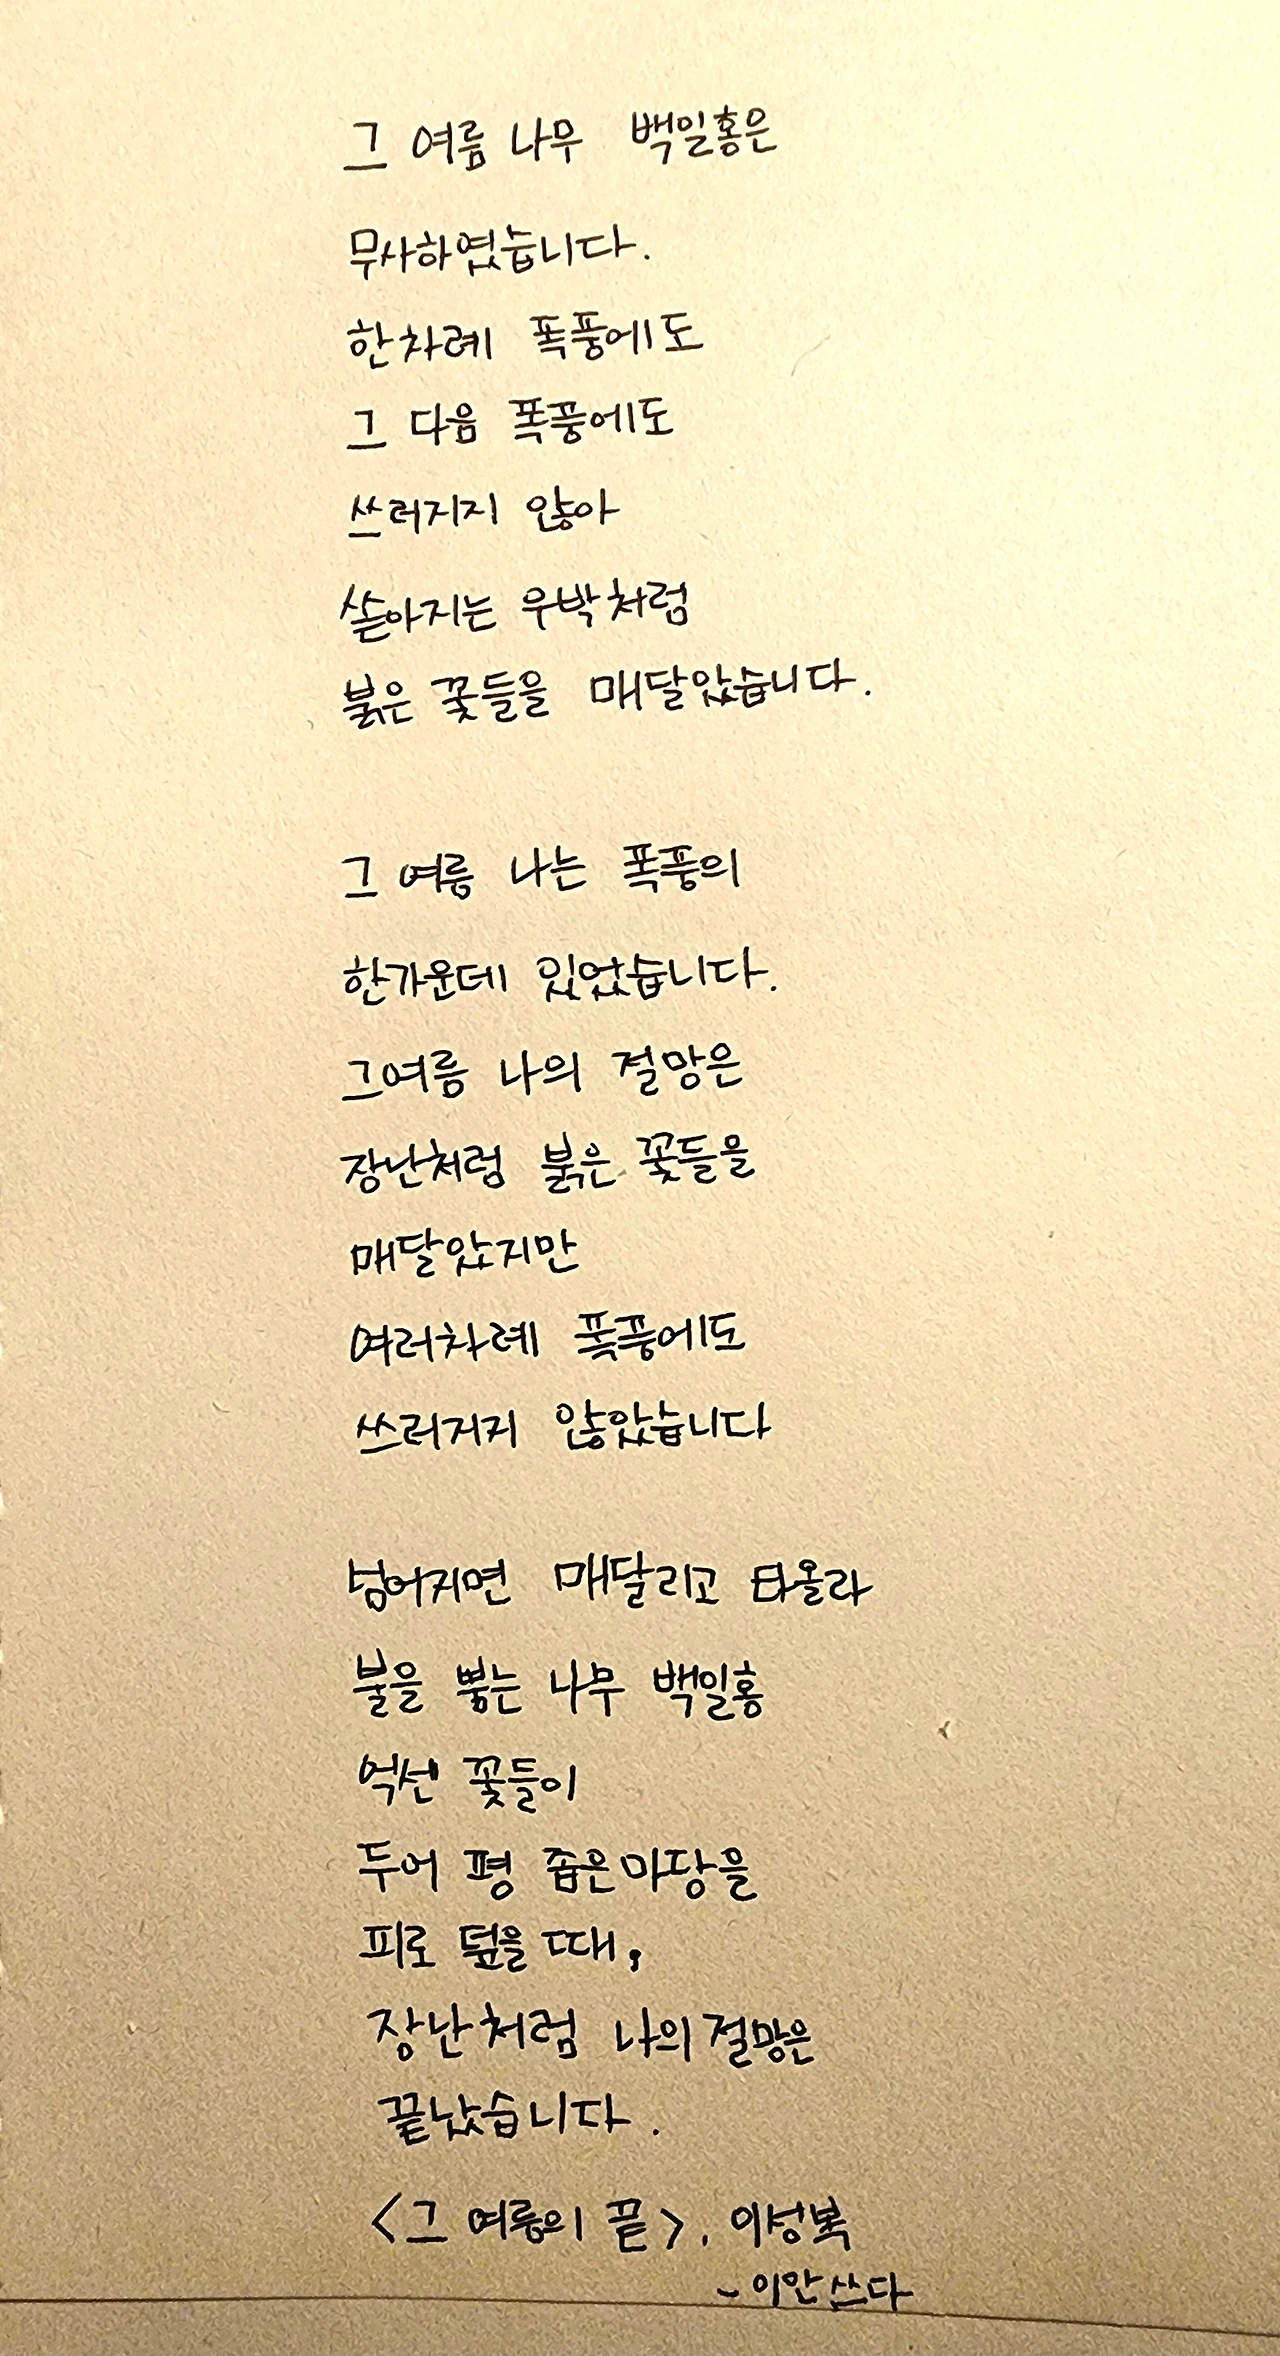 그 여름 나무 백일홍은
무사하였습니다.
한차례 폭풍에도
그 다음 폭풍에도
쓰러지지 않아
쏟아지는 우박처럼
붉은 꽃들을 매달았습니다.
그 여름 나는 폭풍의
한가운데 있었습니다.
그여름 나의 절망은
장난처럼 붉은 꽃들을
매달았지만
여러차례 폭풍에도
쓰러지지 않았습니다
넘어지면 매달리고 타올라
불을 뿜는 나무 백일홍
억센 꽃들이
두어 평 좁은 마당을
피로 덮을 때,
장난처럼 나의 절망은
끝났습니다.
<그 여름의 끝>. 이성복
~이안쓰다